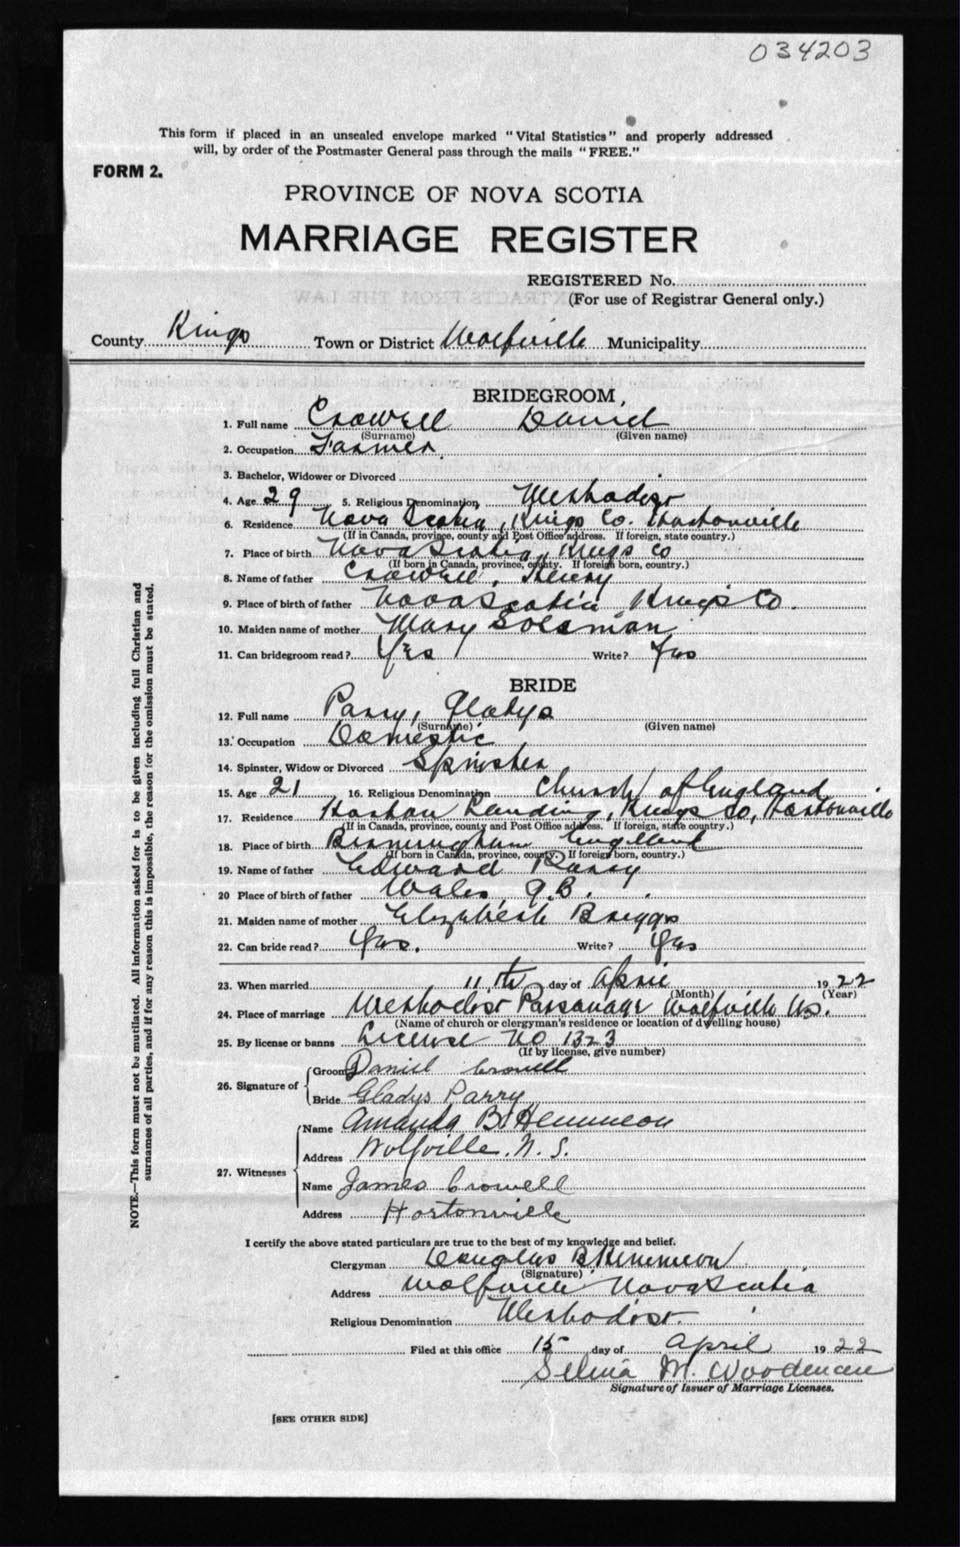 034203
This form if placed in an unsealed envelope marked "Vital Statistics" and properly addressed
will, by order of the Postmaster General pass through the mails "FREE."
FORM 2.
PROVINCE OF NOVA SCOTIA
MARRIAGE REGISTER
REGISTERED No.
(For use of Registrar General only.)
County Kings Town or District Wolfville Municipality
BRIDEGROOM,
1. Full name Crowell Daniel
(Surname) (Given name)
2. Occupation Farmer.
3. Bachelor, Widower or Divorced
4. Age 29 5. Religious Denomination, Methodist
6. Residence Nova Scotia, Kings Co. Hortonville
(If in Canada, province, county and Post Office address. If foreign, state country.)
7. Place of birth Nova Scotia, Kings Co
(If born in Canada, province, county. If foreign born, country.)
8. Name of father Crowell, Henry
9. Place of birth of father Nova Scotia Kings Co.
10. Maiden name of mother Mary
11. Can bridegroom read? Yes Write? Yes
BRIDE
12. Full name Parry, Gladys
(Surname) (Given name)
13. Occupation Domestic
14. Spinster, Widow or Divorced Spinster
15. Age 21 16. Religious Denomination Church of England
17. Residence Horton Landing, Kings Co, Hortonville
(If in Canada, province, county and Post Office address. If foreign, state country.)
18. Place of birth Birmingham England
(If born in Canada, province, county. If foreign born, country.)
19. Name of father Edward Parry
20 Place of birth of father Wales G.B.
21. Maiden name of mother Elizabeth Briggs
22. Can bride read? Yes. Write? Yes
23. When married 11th day of April 1922
(Month) (Year)
24. Place of marriage Methodist Parsonage Wolfville Ns.
(Name of church or clergyman's residence or location of dwelling house)
25. By license or banns License No 1323
(If by license, give number)
26. Signature of
Groom Daniel Crowell
Bride Gladys Parry
27. Witnesses
Name Amanda B. Hemmeon
Address Wolfville. N. S.
Name James Crowell
Address Hortonville
I certify the above stated particulars are true to the best of my knowledge and belief.
Clergyman Douglas B Hemmeon
(Signature)
Address Wolfville Nova Scotia
Religious Denomination Methodist.
Filed at this office 15 day of April 1922
Selina M. Woodman
Signature of Issuer of Marriage Licenses.
[SEE OTHER SIDE]
NOTE.—This form must not be mutilated. All information asked for is to be given including full Christian and
surnames of all parties, and if for any reason this is impossible, the reason for the omission must be stated.